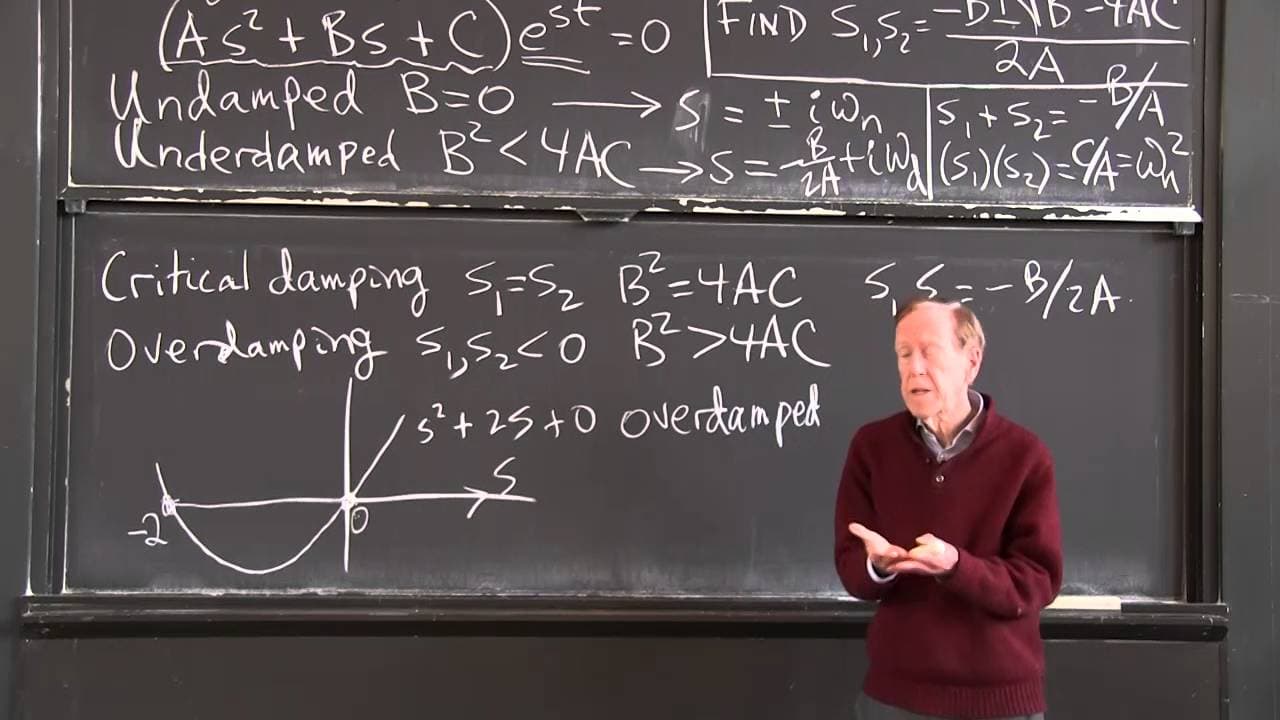 (As² + Bs + C)e^st = 0
FIND S₁,S₂ = -B±√B²-4AC / 2A
Undamped B=0 → S = ± iωₙ
Underdamped B² < 4AC → S = -B/2A + iω_d
S₁ + S₂ = -B/A
(S₁)(S₂) = C/A = ωₙ²
Critical damping S₁=S₂ B²=4AC S₁ S = -B/2A
Overdamping S₁,S₂<0 B²>4AC
s² + 2s + 0 overdamped
S
-2
0